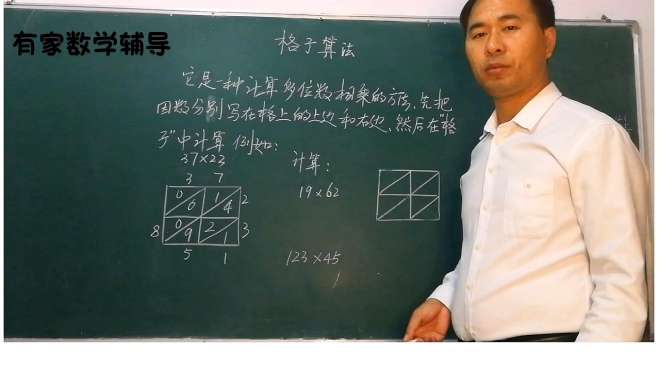 有家数学辅导
格子算法
它是一种计算多位数相乘的方法,先把
因数分别写在格上的上边和右边,然后在"格
子"中计算 例如:
37×23 计算:
3 7
19×62
0 6 1 4 2
8 0 9 2 1 3
5 1
123×45